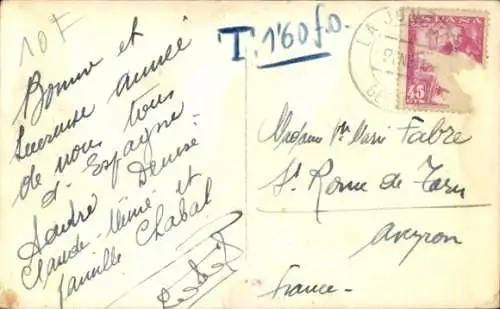 10 F
Bonne et
heureuse année
de nous tous
d'Espagne
André Denise
Claude Mimi et
famille Chabal
T. 1'60 f.o.
LA JUN
45
CTS
Madame Vve Marie Fabre
St Rome de Tarn
Aveyron
France